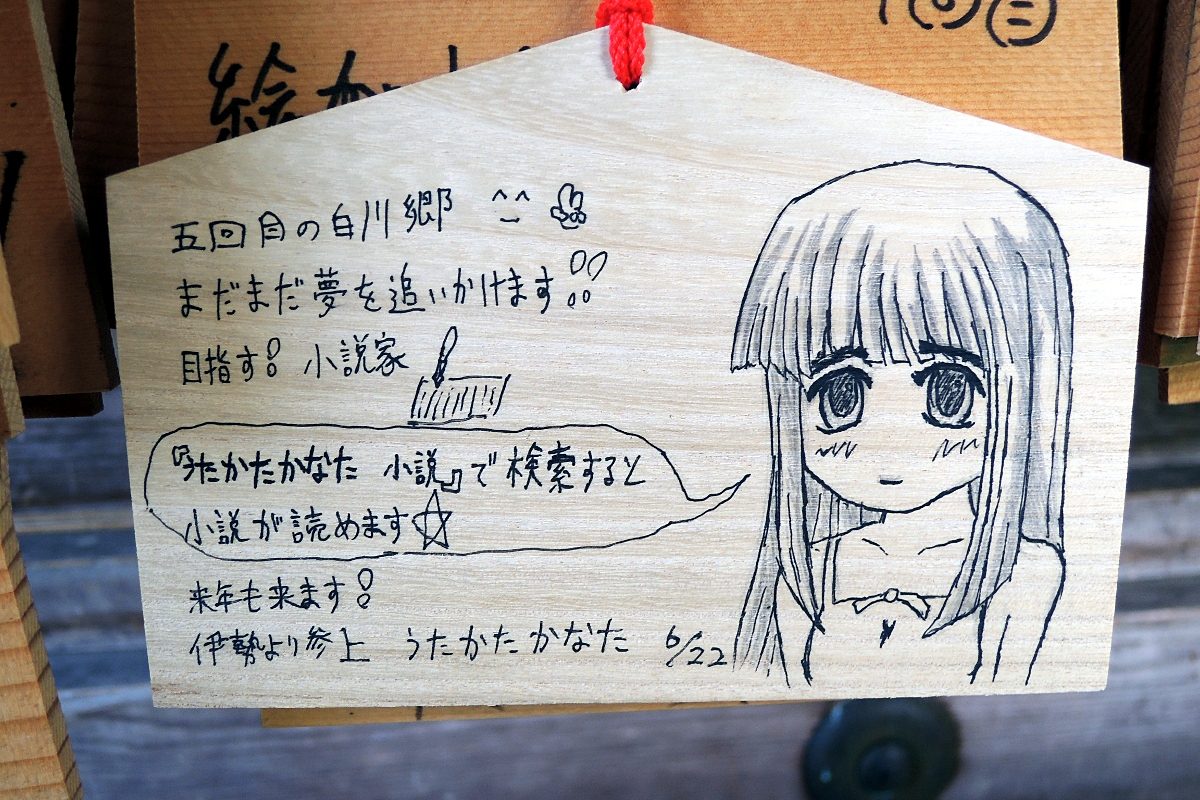 絵
五回目の白川郷 ^^
まだまだ夢を追いかけます!!
目指す! 小説家
『うたかたかなた 小説』で検索すると
小説が読めます☆
来年も来ます!
伊勢より参上 うたかたかなた 6/22